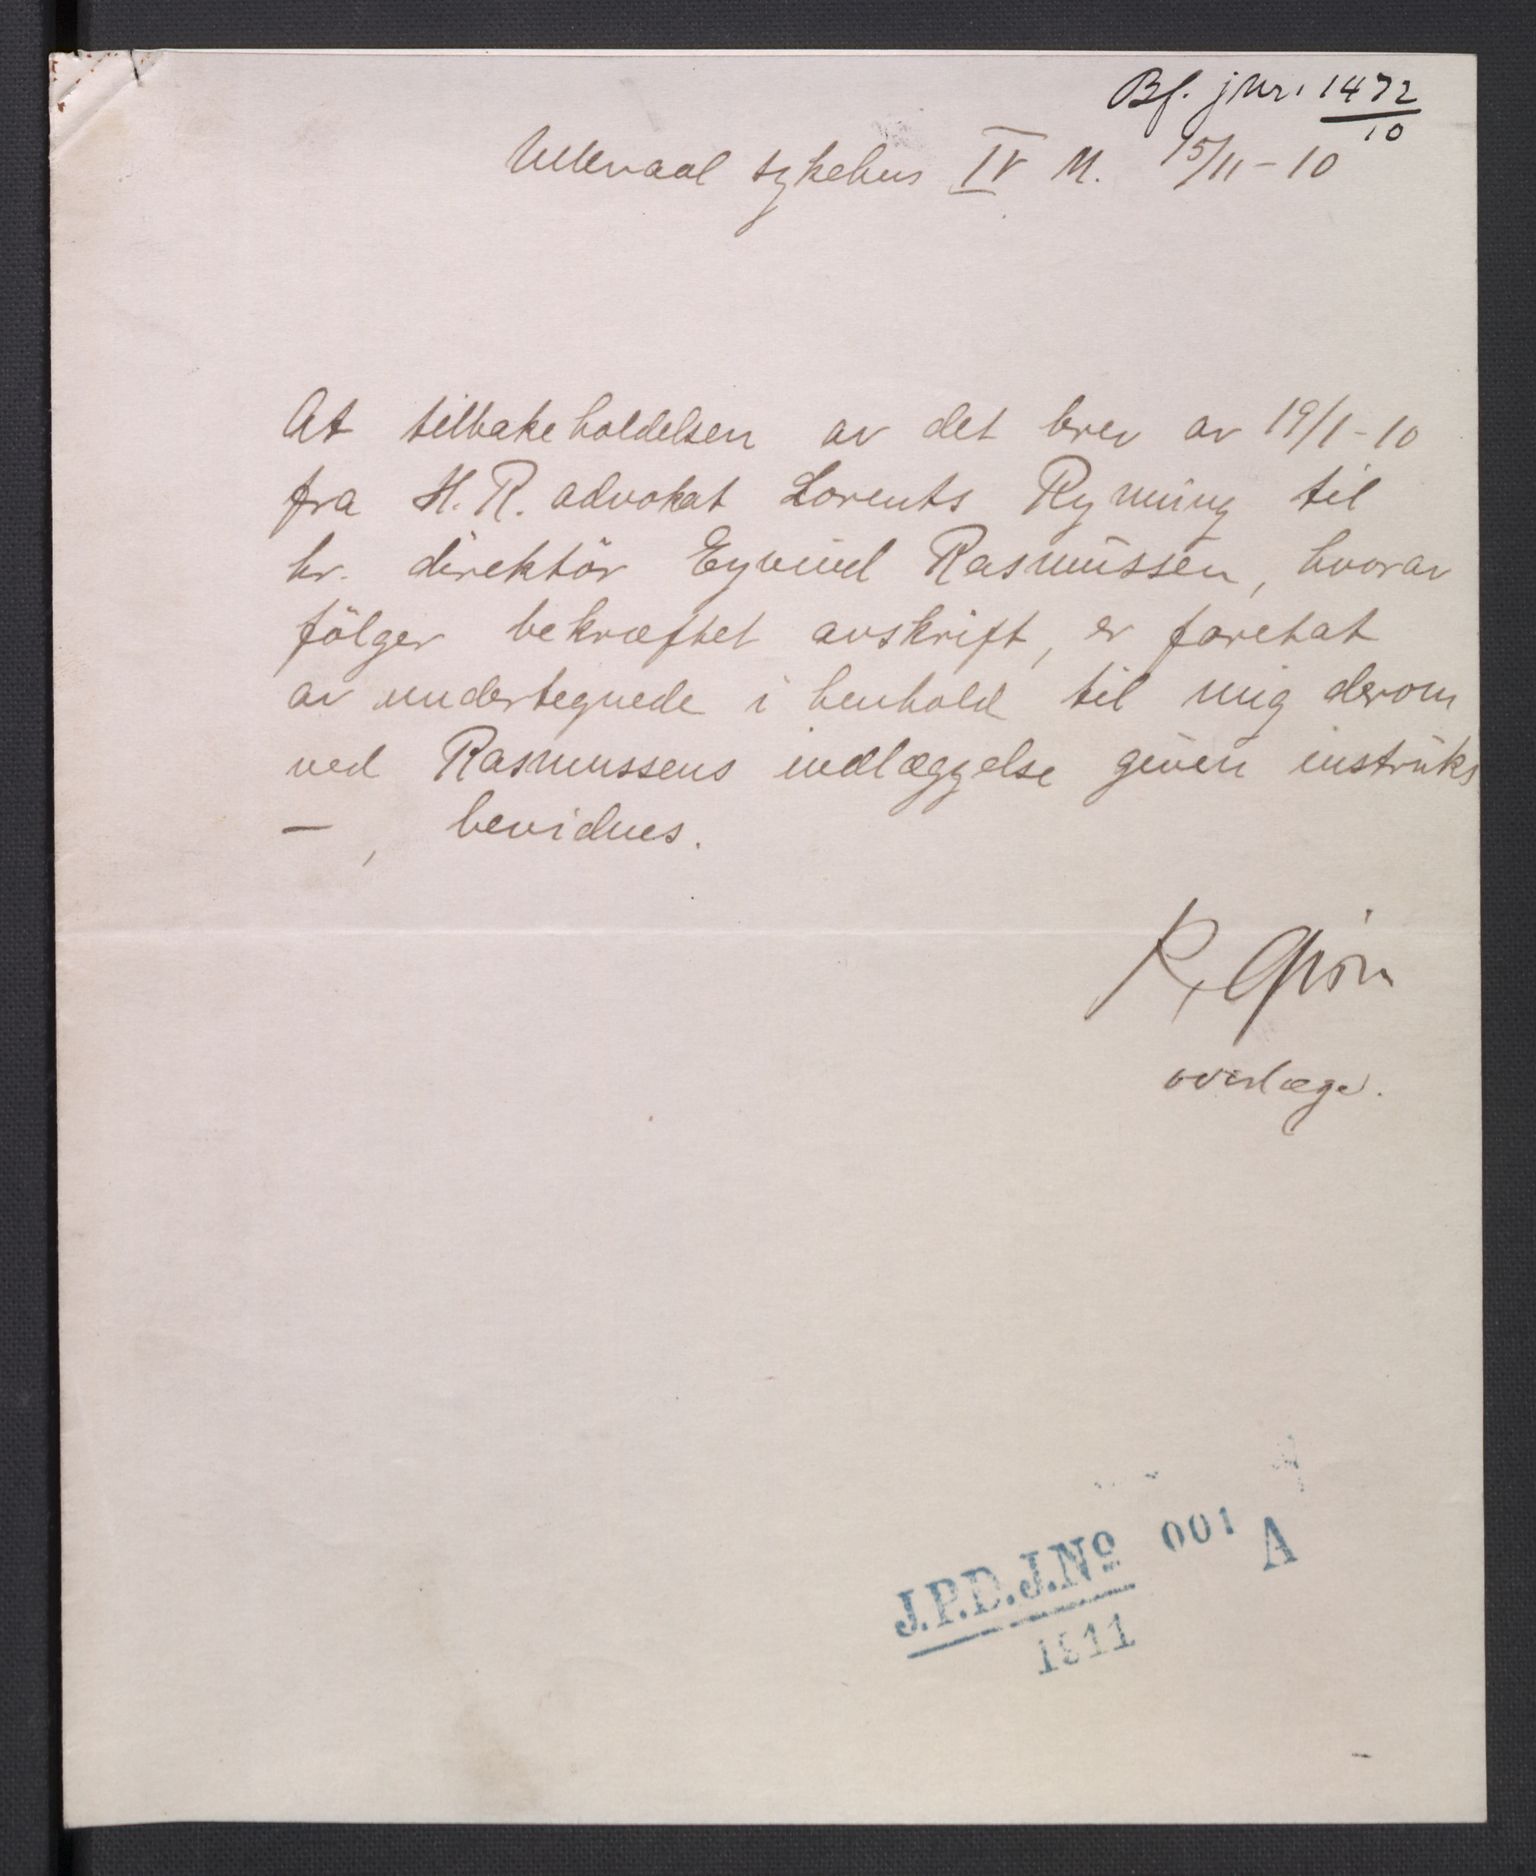 Bf. jnr. 1472
10
Ullevaal sykehus IV M. 15/11-10
At tilbakeholdelsen av det brev av 19/1-10
fra H. R. advokat Lorents Rynning til
hr. direktör Eyvind Rasmussen, hvorav
fölger bekræftet avskrift, er foretat
av undertegnede i henhold til mig derom
ved Rasmussens indlæggelse given instruks
—, bevidnes.
R. Gjör
overlæge.
J.P.D.J.No 001 A
1911